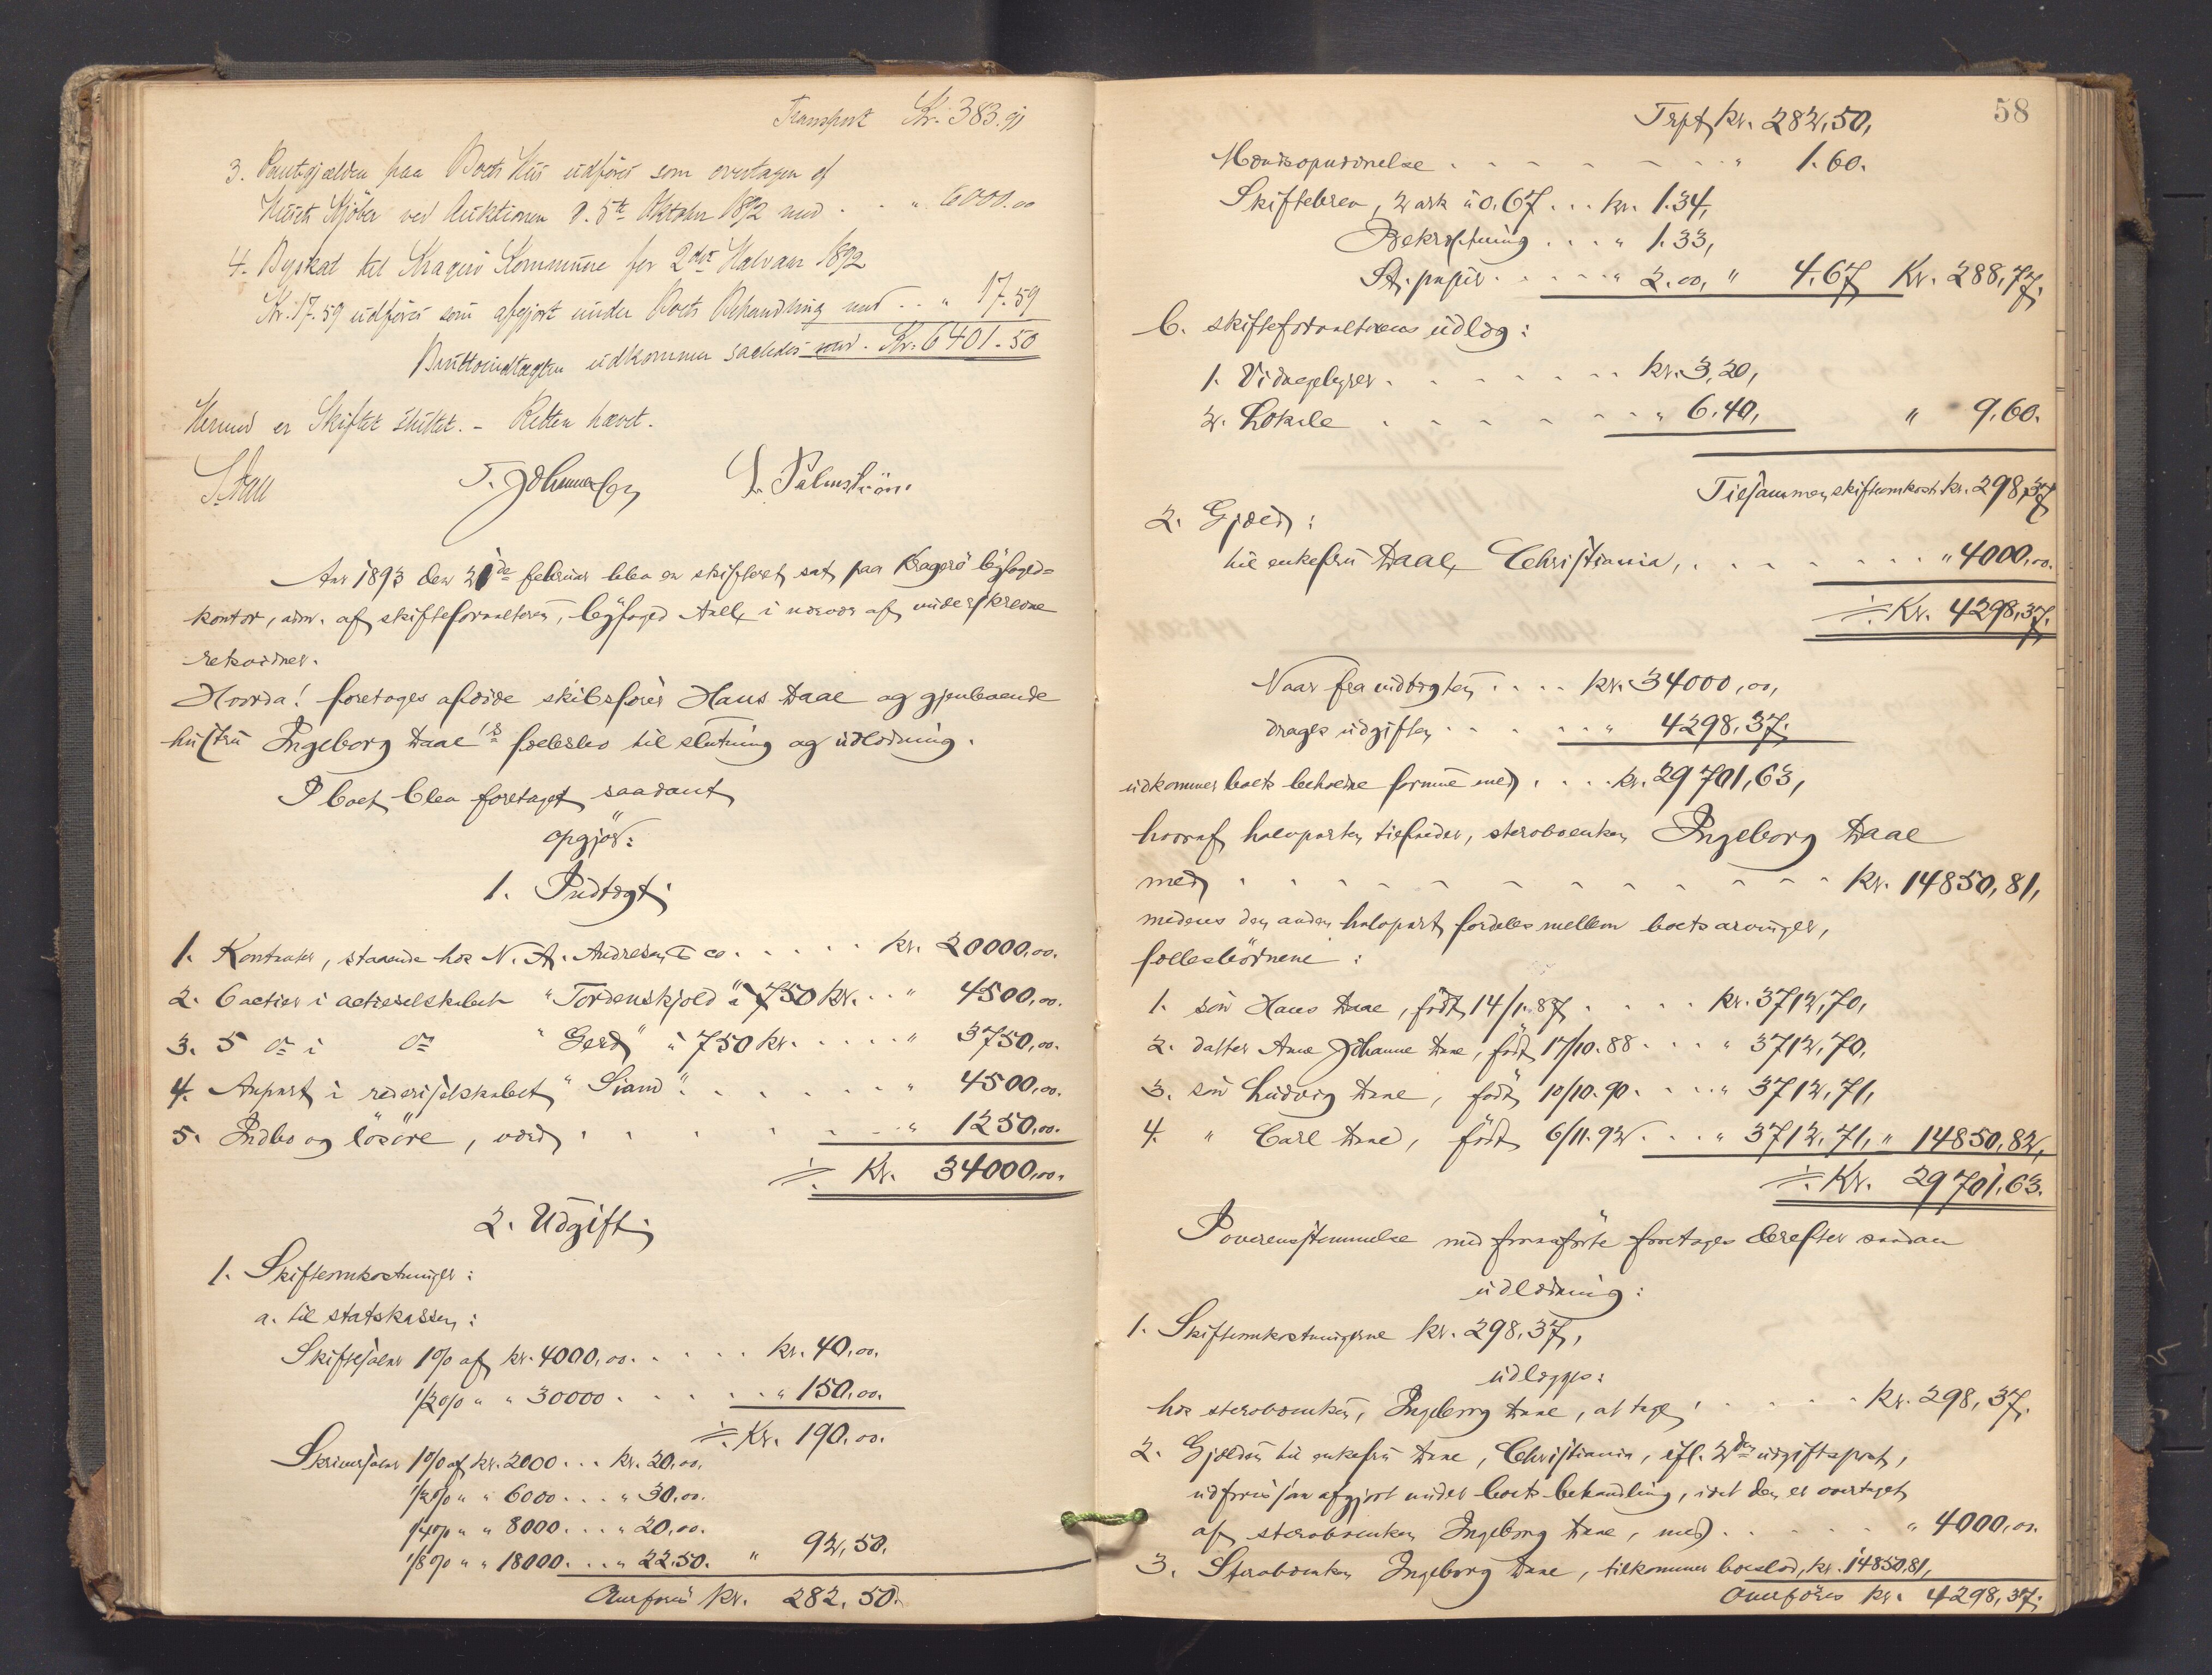 Transport Kr. 383.91
3. Pantegjælden paa Boets Hus udføres som overtagen af
Husets Kjøber ved Auktionen d. 5te Oktober 1892 med . . " 6000.00
4. Byskat til Kragerø Kommune for 2det Halvaar 1892
Kr. 17.59 udføres som afgjort under Boets Behandling med . . " 17.59
Bruttoindtægten udkommer saaledes med . Kr. 6401.50
Hermed er Skiftet sluttet. – Retten hævet.
Aall T. Johannesen L. Palmström.
Aar 1893 den 21de februar blev en skifteret sat paa Kragerö byfoged-
kontor, adm. af skifteforvalteren, byfoged Aall, i nærvær af underskrevne
retsvidner.
Hvorda! foretoges afdöde skibsförer Hans Daae og gjenlevende
hustru Ingeborg Daae's fællesbo til slutning og udlodning.
I boet blev foretaget saadant
opgjör:
1. Indtægt.
1. Kontanter, staaende hos N. A. Andresen & co. . . . . kr. 20000,00.
2. 6 actier i actieselskabet "Tordenskjold" à 750 kr. . . " 4500,00.
3. 5 do i do "Gerd" à 750 kr. . . . . . " 3750,00.
4. Anpart i rederiselskabet "Siam" . . . . . . " 4500,00.
5. Indbo og lösöre, værd . . . . . . . " 1250,00.
÷ Kr. 34000,00.
2. Udgift.
1. Skifteomkostninger:
a. til statskassen:
Skiftesalær 1% af kr. 4000,00. . . . . . kr. 40,00.
1/2% " " 30000 . . . . . . " 150,00.
÷ Kr. 190,00.
Skriversalær 1% af kr. 2000 . . . kr. 20,00.
1/2% " " 6000 . . . " 30,00.
1/4% " " 8000 . . . " 20,00.
1/8% " " 18000 . . . " 22.50. " 92,50.
Overföres kr. 282,50.
58
Trpt kr. 282,50,
Mandsopnævnelse . . . . . . . . " 1.60.
Skiftebrev, 2 ark à 0.67 . . . kr. 1.34,
Bekræftning . . . " 1.33,
St. papir . . . . . " 2.00, " 4.67 Kr. 288,77.
b. skifteforvalterens udlæg:
1. Vidnegebyrer . . . . . . . kr. 3,20,
2. Lokale . . . . . . . . " 6.40, " 9,60.
Tilsammen skifteomkost. kr. 298,37
2. Gjæld:
til enkefru Daae, Christiania, . . . . . . . " 4000,00.
÷ Kr. 4298,37.
Naar fra indtægten . . . . kr. 34000,00,
drages udgiften . . . . . . " 4298,37.
udkommer boets beholdne formue med . . . . kr. 29701,63,
hvoraf halvparten tilfalder, stervboenken Ingeborg Daae
med . . . . . . . . . . . . . kr. 14850,81,
medens den anden halvpart fordeles mellem boets arvinger,
fællesbörnene:
1. sön Hans Daae, födt 14/1.87 . . . . . kr. 3712,70,
2. datter Ane Johanne Daae, födt 17/10.88 . . . " 3712,70,
3. sön Ludvig Daae, födt 10/10.90. . . . . " 3712,71,
4. " Carl Daae, födt 6/11.92 . . . " 3712,71, " 14850,82,
÷ Kr. 29701,63.
I overensstemmelse med foranförte foretoges derefter saadan
udlodning:
1. Skifteomkostningerne kr. 298,37,
udlægges:
hos stervboenken, Ingeborg Daae, at tage, . . . . . kr. 298,37.
2. Gjælden til enkefru Daae, Christiania, ifl. 2den udgiftspost,
udföres som afgjort under boets behandling, idet den er overtaget
af stervboenken Ingeborg Daae, med . . . . . . " 4000,00.
3. Stervboenken Ingeborg Daae, tilkommer boeslod, kr. 14850,81,
Overföres kr. 4298,37.